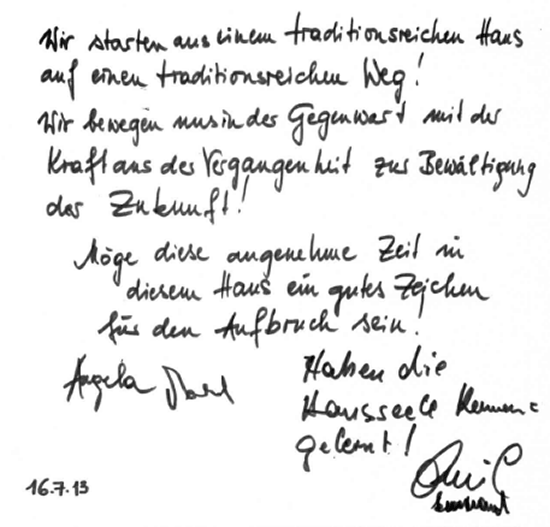 Wir starten aus einem traditionsreichen Haus
auf einen traditionsreichen Weg!
Wir bewegen uns in der Gegenwart mit der
Kraft aus der Vergangenheit zur Bewältigung
der Zukunft!
Möge diese angenehme Zeit in
diesem Haus ein gutes Zeichen
für den Aufbruch sein.
Angela
Haben die
Hausseele kennen=
gelernt!
16.7.13